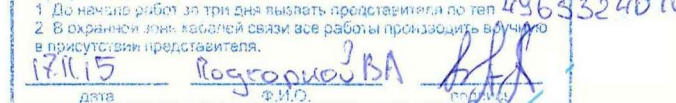 1 До начала работ за три дня вызвать представителя по тел
2 В охранной зоне кабелей связи все работы производить вручную
в присутствии представителя.
17.11.15
дата Ф.И.О. подпись